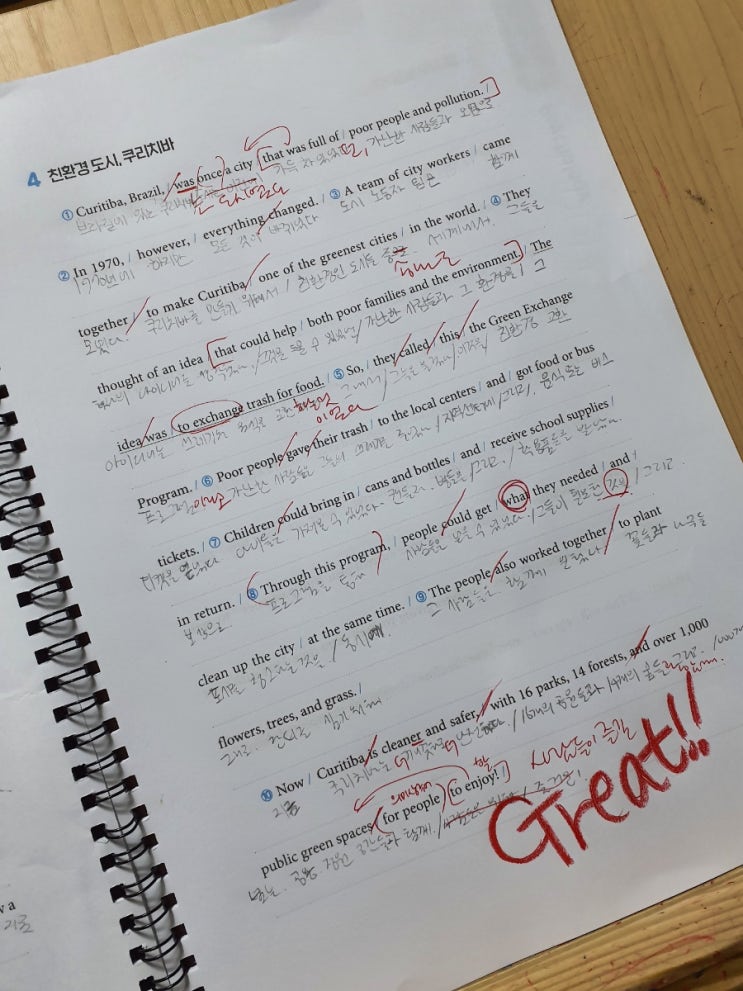 4 친환경 도시, 쿠리치바
① Curitiba, Brazil, / was once a city / that was full of / poor people and pollution. /
브라질에 있는 쿠리치바는 가득 차 있었던, 가난한 사람들과 오염으로
② In 1970, / however, / everything changed. / ③ A team of city workers / came
1970년에 하지만 모든 것이 바뀌었다 도시 노동자 팀은 함께
together / to make Curitiba / one of the greenest cities / in the world. ④ They
모였다. 쿠리치바를 만들기 위해서 / 친환경인 도시들 중 세계에서. 그들은
thought of an idea / that could help / both poor families and the environment. / The
생각했다 / 도울 수 있었던 / 가난한 사람들과 그 환경을 / 그
idea was / to exchange trash for food. ⑤ So, / they called / this / the Green Exchange
아이디어는 쓰레기를 음식으로 교환하는것 이었다 그래서 / 친환경 교환
Program. / ⑥ Poor people gave their trash / to the local centers / and / got food or bus
프로그램이라고 가난한 사람들은 그들의 쓰레기를 / 그리고 / 음식 또는 버스
tickets. / ⑦ Children could bring in / cans and bottles / and / receive school supplies /
티켓을 얻었다 아이들은 가져올 수 있었다 캔들과 병들을 / 그리고 / 학용품들을 받았다.
in return. / ⑧ Through this program, / people could get / what they needed / and /
보상으로 프로그램을 통해 사람들은 얻을 수 있었다 / 그들이 필요한 것을 / 그리고
clean up the city / at the same time. / ⑨ The people also worked together / to plant
도시를 청소하는 것을 / 동시에. 그 사람들은 함께 일했다 / 꽃들과 나무들
flowers, trees, and grass. /
그리고 잔디를 심기위해
⑩ Now / Curitiba is cleaner and safer, / with 16 parks, 14 forests, and over 1,000
지금 쿠리치바는 더 깨끗하고 더 안전하다 / 16개의 공원들과 14개의 숲들 그리고 1000개
public green spaces / for people / to enjoy! /
넘는 공공 정원 공간들과 함께 / 사람들이 즐길
Great!!